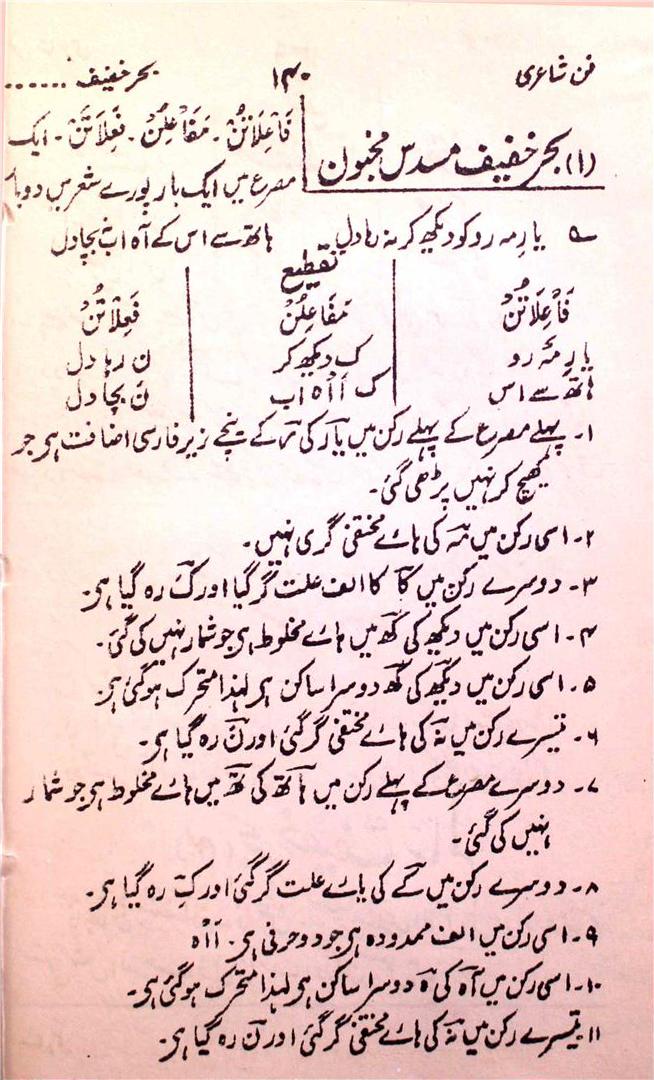 فن شاعری ۱۴۰ بحر خفیف ......
(۱) بحر خفیف مسدس مخبون
فَاْعِلَاتُنْ ۔ مَفَاْعِلُنْ ۔ فَعِلَاتُنْ ۔ ایک
مصرع میں ایک بار پورے شعر میں دو با
یارِ مہ رو کو دیکھ کر نہ رہا دل ہاتھ سے اس کے آہ اب نہ بچا دل
تقطیع
فَاْعِلَاتُنْ مَفَاْعِلُنْ فَعِلَاتُنْ
یارِ مہ رو ک دیکھ کر ن رہا دل
ہاتھ سے اس ک اَاْہ اب نَ بچا دل
۱۔ پہلے مصرع کے پہلے رکن میں یار کی ر کے نیچے زیر فارسی اضافت ہی جو
کھیچ کر نہیں پڑھی گئی۔
۲۔ اسی رکن میں مہ کی ہائے مختفی گری نہیں۔
۳۔ دوسرے رکن میں کا کا الف علت گر گیا اور ک رہ گیا ہی۔
۴۔ اسی رکن میں دیکھ کی کھ میں ہائے مخلوط ہی جو شمار نہیں کی گئی۔
۵۔ اسی رکن میں دیکھ کی کھ دوسرا ساکن ہی لہذا متحرک ہو گئی ہی۔
۶۔ تیسرے رکن میں نہ کی ہائے مختفی گر گئی اور ن رہ گیا ہی۔
۷۔ دوسرے مصرع کے پہلے رکن میں ہاتھ کی تھ میں ہائے مخلوط ہی جو شمار
نہیں کی گئی۔
۸۔ دوسرے رکن میں کے کی یائے علت گر گئی اور کِ رہ گیا ہی۔
۹۔ اسی رکن میں الف ممدودہ ہی جو دو حرفی ہی۔ اَاْہ
۱۰۔ اسی رکن میں آہ کی ہ دوسرا ساکن ہی لہذا متحرک ہو گئی ہی۔
۱۱۔ تیسرے رکن میں نہ کی ہائے مختفی گر گئی اور ن رہ گیا ہی۔